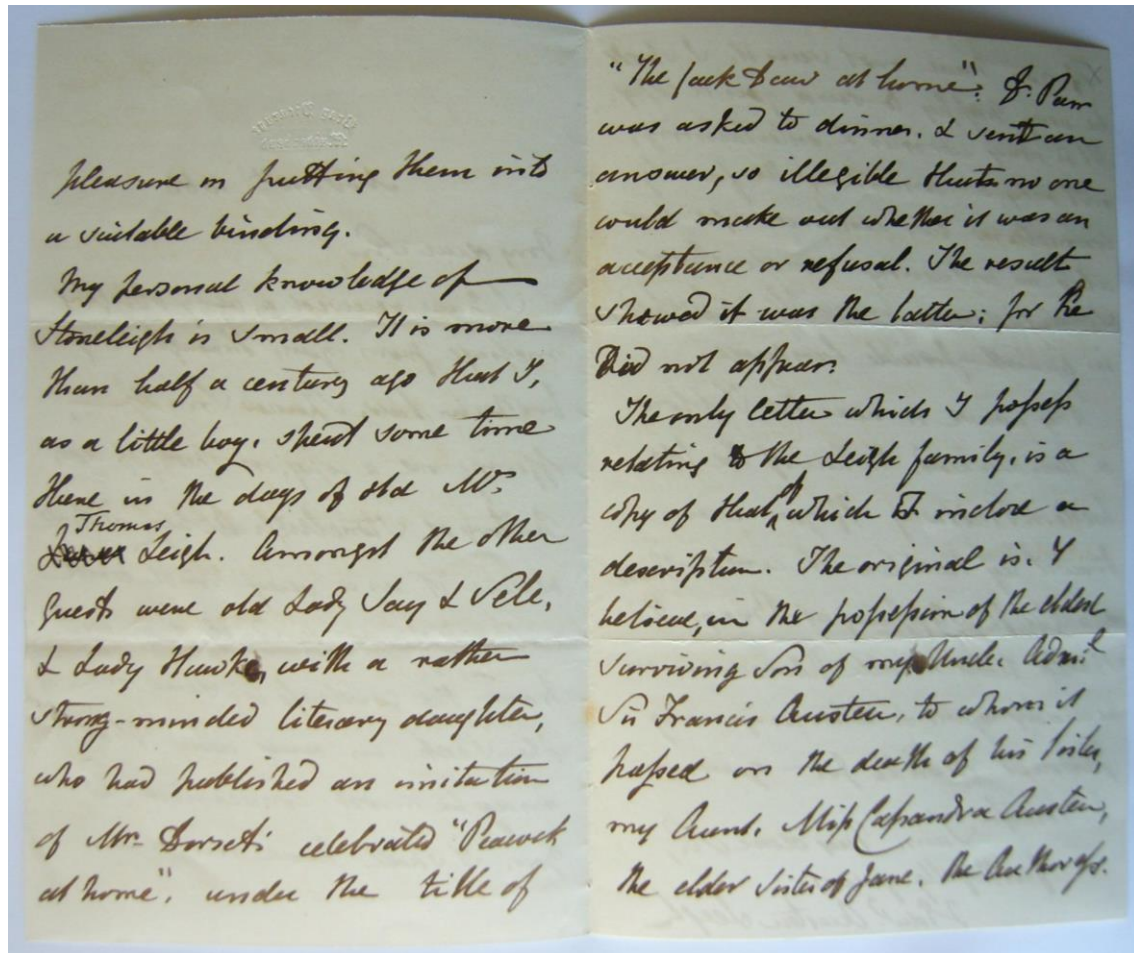 pleasure in putting them into
a suitable binding.
My personal knowledge of
Stoneleigh is small. It is more
than half a century ago that I,
as a little boy, spent some time
there in the days of old Mrs
Thomas
Leigh. Amongst the other
guests were old Lady Say & Sele,
& Lady Hawke, with a rather
strong-minded literary daughter,
who had published an imitation
of Mrs Dorset's celebrated "Peacock
at home", under the title of
"The Jack Daw at home". Dr. Parr
was asked to dinner, & sent an
answer, so illegible that no one
could make out whether it was an
acceptance or refusal. The result
showed it was the latter; for he
Did not appear.
The only letter which I possess
relating to the Leigh family, is a
copy of that, of which I inclose a
description. The original is, I
believe, in the possession of the eldest
surviving Son of my Uncle, Adml
Sir Francis Austen, to whom it
passed on the death of his Sister,
my Aunt, Miss Cassandra Austen,
the elder Sister of Jane, the Authoress.